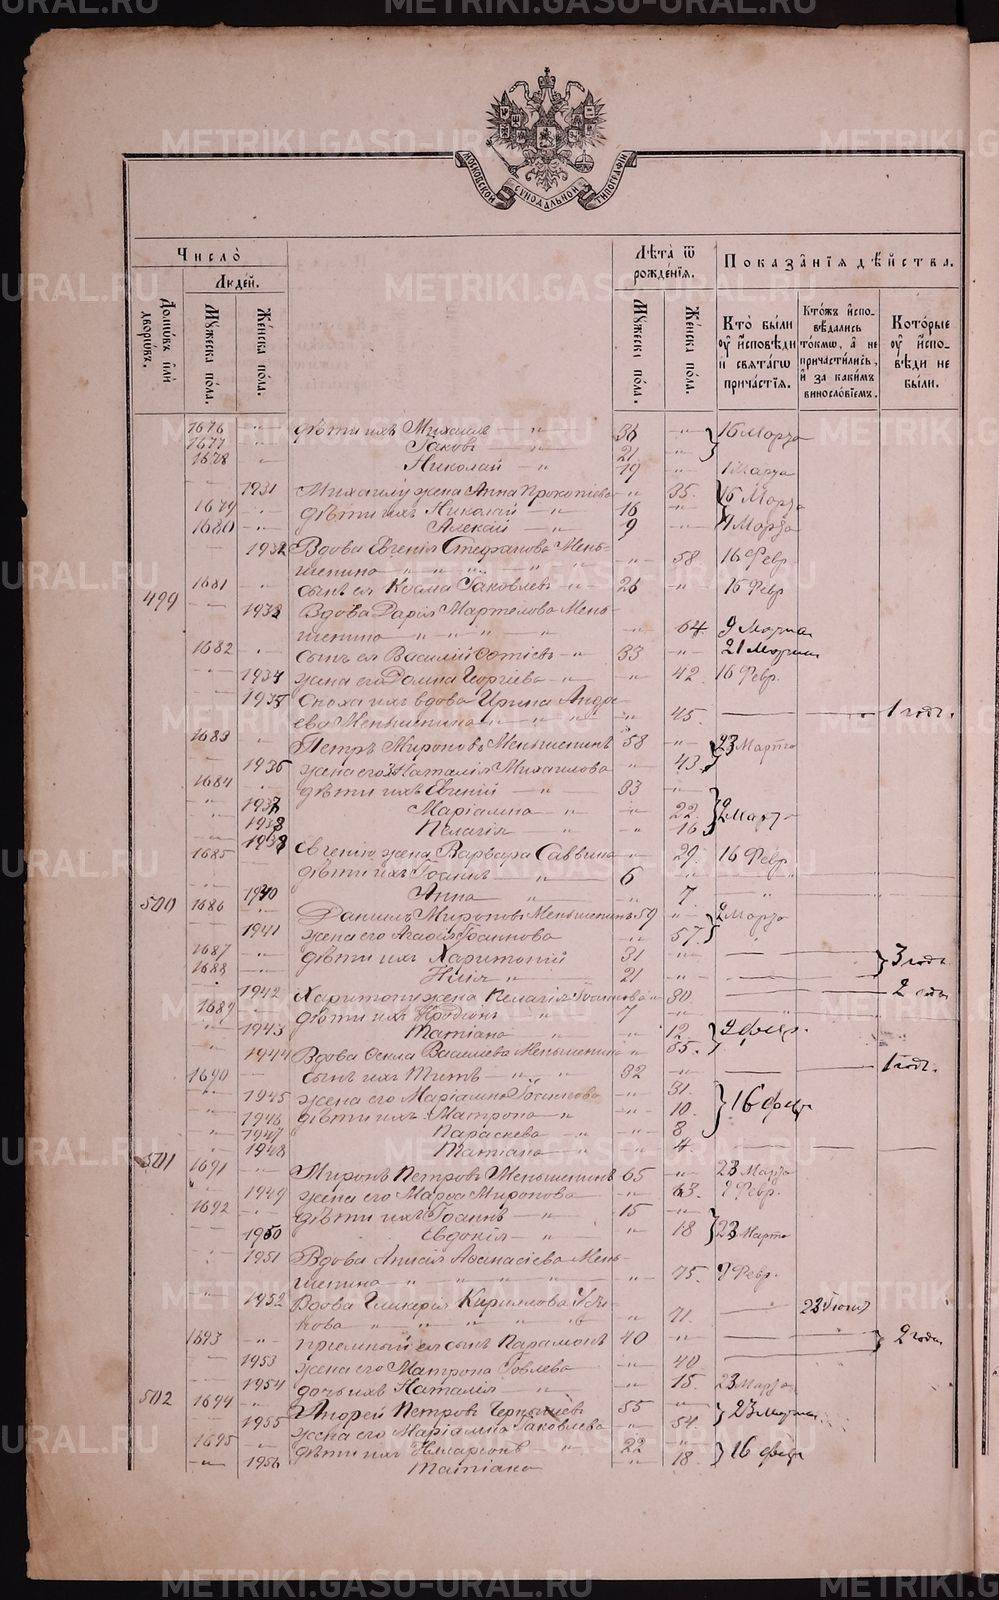 METRIKI.GASO-URAL.RU
МОСКОВСКОЙ СѴНОДАЛЬНОЙ ТИПОГРАФІИ
Число̀
Люде́й.
Домѡ́въ и҆лѝ дворѡ́въ.
Мꙋ́жеска по́ла.
Же́нска по́ла.
Лѣ́та ѿ рожде́нїѧ.
Мꙋ́жеска по́ла.
Же́нска по́ла.
Показа̂нїѧ дѣ́йства.
Кто̀ бы́ли ᲂу҆ и҆сповѣди и свѧта́гѡ прича́стїѧ.
Кто́жъ и҆сповѣдались то́кмѡ, а҆ не причасти́лись, и҆ за каки́мъ винослѡвїемъ.
Кото́рые ᲂу҆ и҆сповѣди не бы́ли.
1676 дѣти ихъ Михаилъ 36 16 Марта
1677 Іаковъ 21
1678 Николай 19 1 Марта
1931 Михаилу жена Анна Прокопіева 35. 16 Марта
1679 дѣти ихъ Николай 16
1680 Алексій 9 1 Марта
1932 Вдова Евгенія Стефанова Мень-
шенина 58 16 Февр
1681 сынъ ея Косма Іаковлевъ 26 16 Февр
499 1933 Вдова Дарія Мартемова Мень-
шенина 64 9 Марта
1682 сынъ ея Василій Фотіевъ 33 21 Марта
1934 жена его Домна Георгіева 42 16 Февр.
1935 Сноха ихъ вдова Ирина Андре-
ева Меньшенина 45. 1 годъ.
1683 Петръ Мироновъ Меньшенинъ 58 23 Марта
1936 жена его Наталія Михаилова 43
1684 дѣти ихъ Евгеній 33
1937 Маріамна 22 2 Марта
1938 Пелагія 16
1939 Евгенію жена Варвара Саввина 29. 16 Февр
1685 дѣти ихъ Іоаннъ 6
1940 Анна 7.
500 1686 Даніилъ Мироновъ Меньшенинъ 59 2 Марта
1941 жена его Агафія Іоаннова 57.
1687 дѣти ихъ Харитоній 31 3 годъ
1688 Илія 21
1942 Харитону жена Пелагія Іоаннова 30. 2 года
1689 дѣти ихъ Иродіонъ 7
1943 Татіана 12. 9 февр.
1944 Вдова Фекла Васильева Меньшенина 65.
1690 сынъ ихъ Титъ 32 1 годъ.
1945 жена его Маріамна Іоаннова 31.
1946 дѣти ихъ Матрона 10. 16 февр
1947 Параскева 8
1948 Татіана 4
501 1691 Миронъ Петровъ Меньшенинъ 65 23 Марта
1949 жена его Марфа Миронова 63. 9 Февр.
1692 дѣти ихъ Іоаннъ 15
1950 Евдокія 18 23 Марта
1951 Вдова Анисія Афанасіева Мень-
шенина 75. 9 Февр.
1952 Вдова Гликерія Кириллова
кова 71.
1693 пріемный ея сынъ Парамонъ 40 2 года
1953 жена его Матрона Іовлева 40
1954 дочь ихъ Наталія 15. 23 Марта
502 1694 Андрей Петровъ Чернышевъ 55 23 Марта
1955 жена его Маріамна Іаковлева 54
1695 дѣти ихъ Илларіонъ 22 16 февр
1956 Татіана 18.